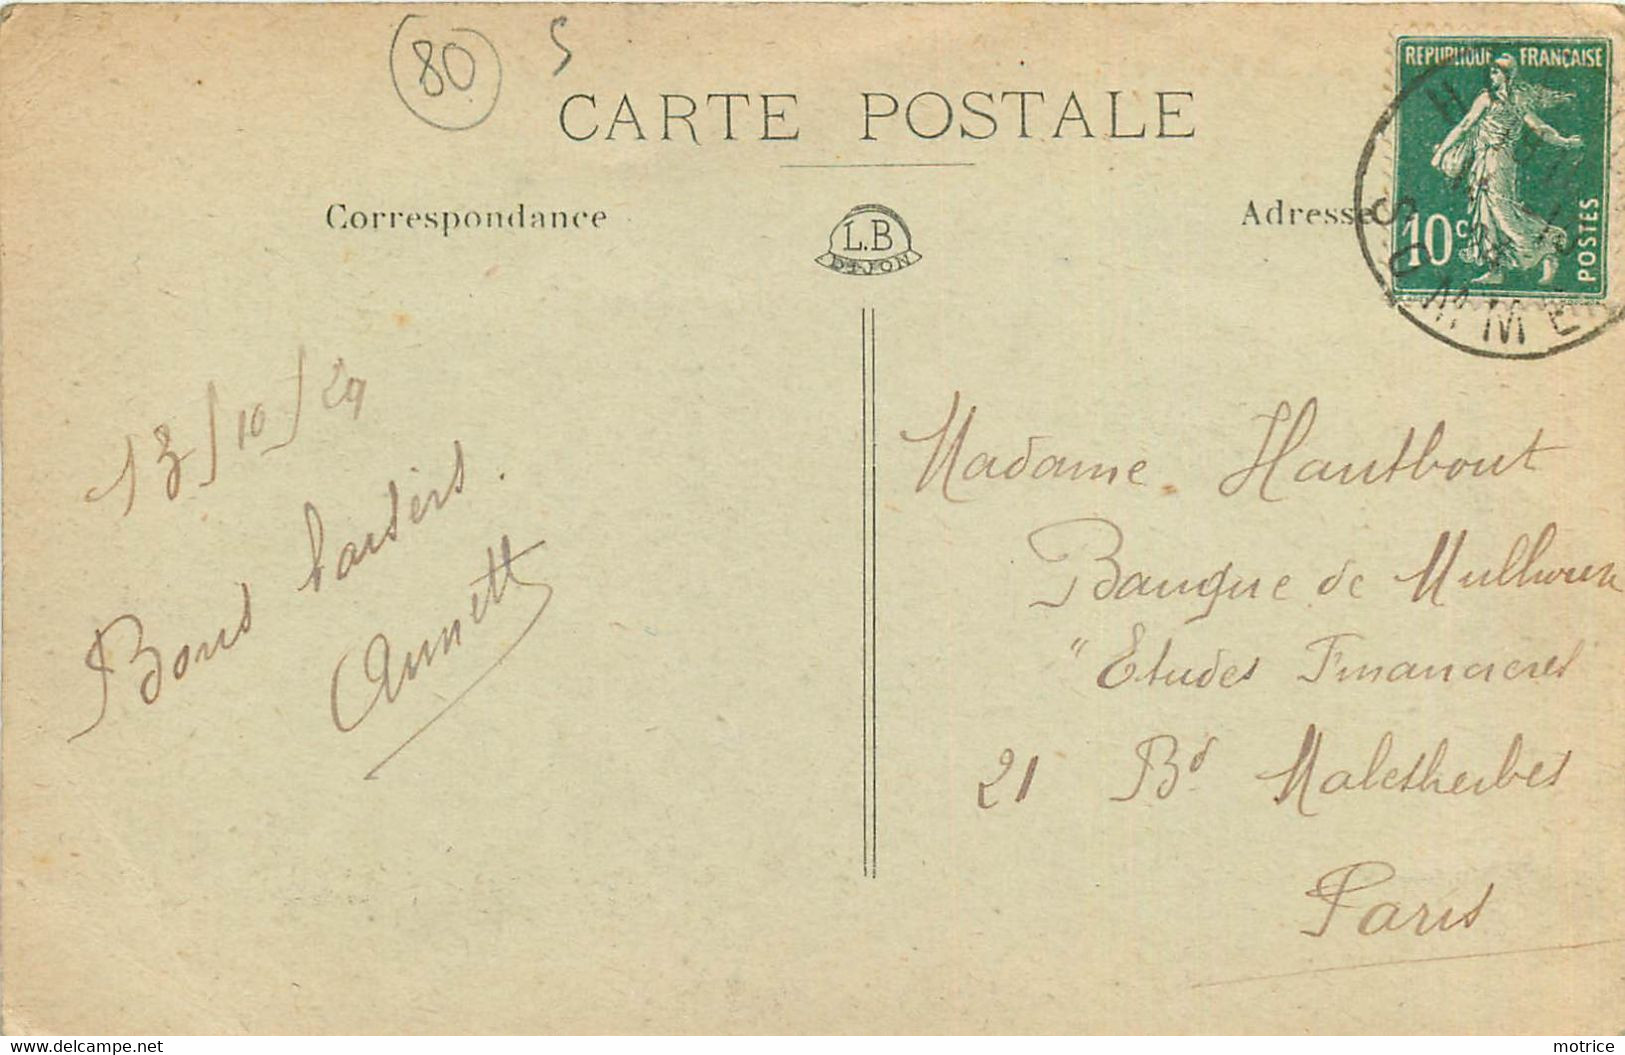 80 S
CARTE POSTALE
Correspondance
L.B
DIJON
Adresse
REPUBLIQUE FRANÇAISE
10c
POSTES
SOMME
13/10/29
Bons baisers.
Annette
Madame Hautbout
Banque de Mulhouse
"Etudes Financieres
21 Bd Malesherbes
Paris
www.delcampe.net
motrice